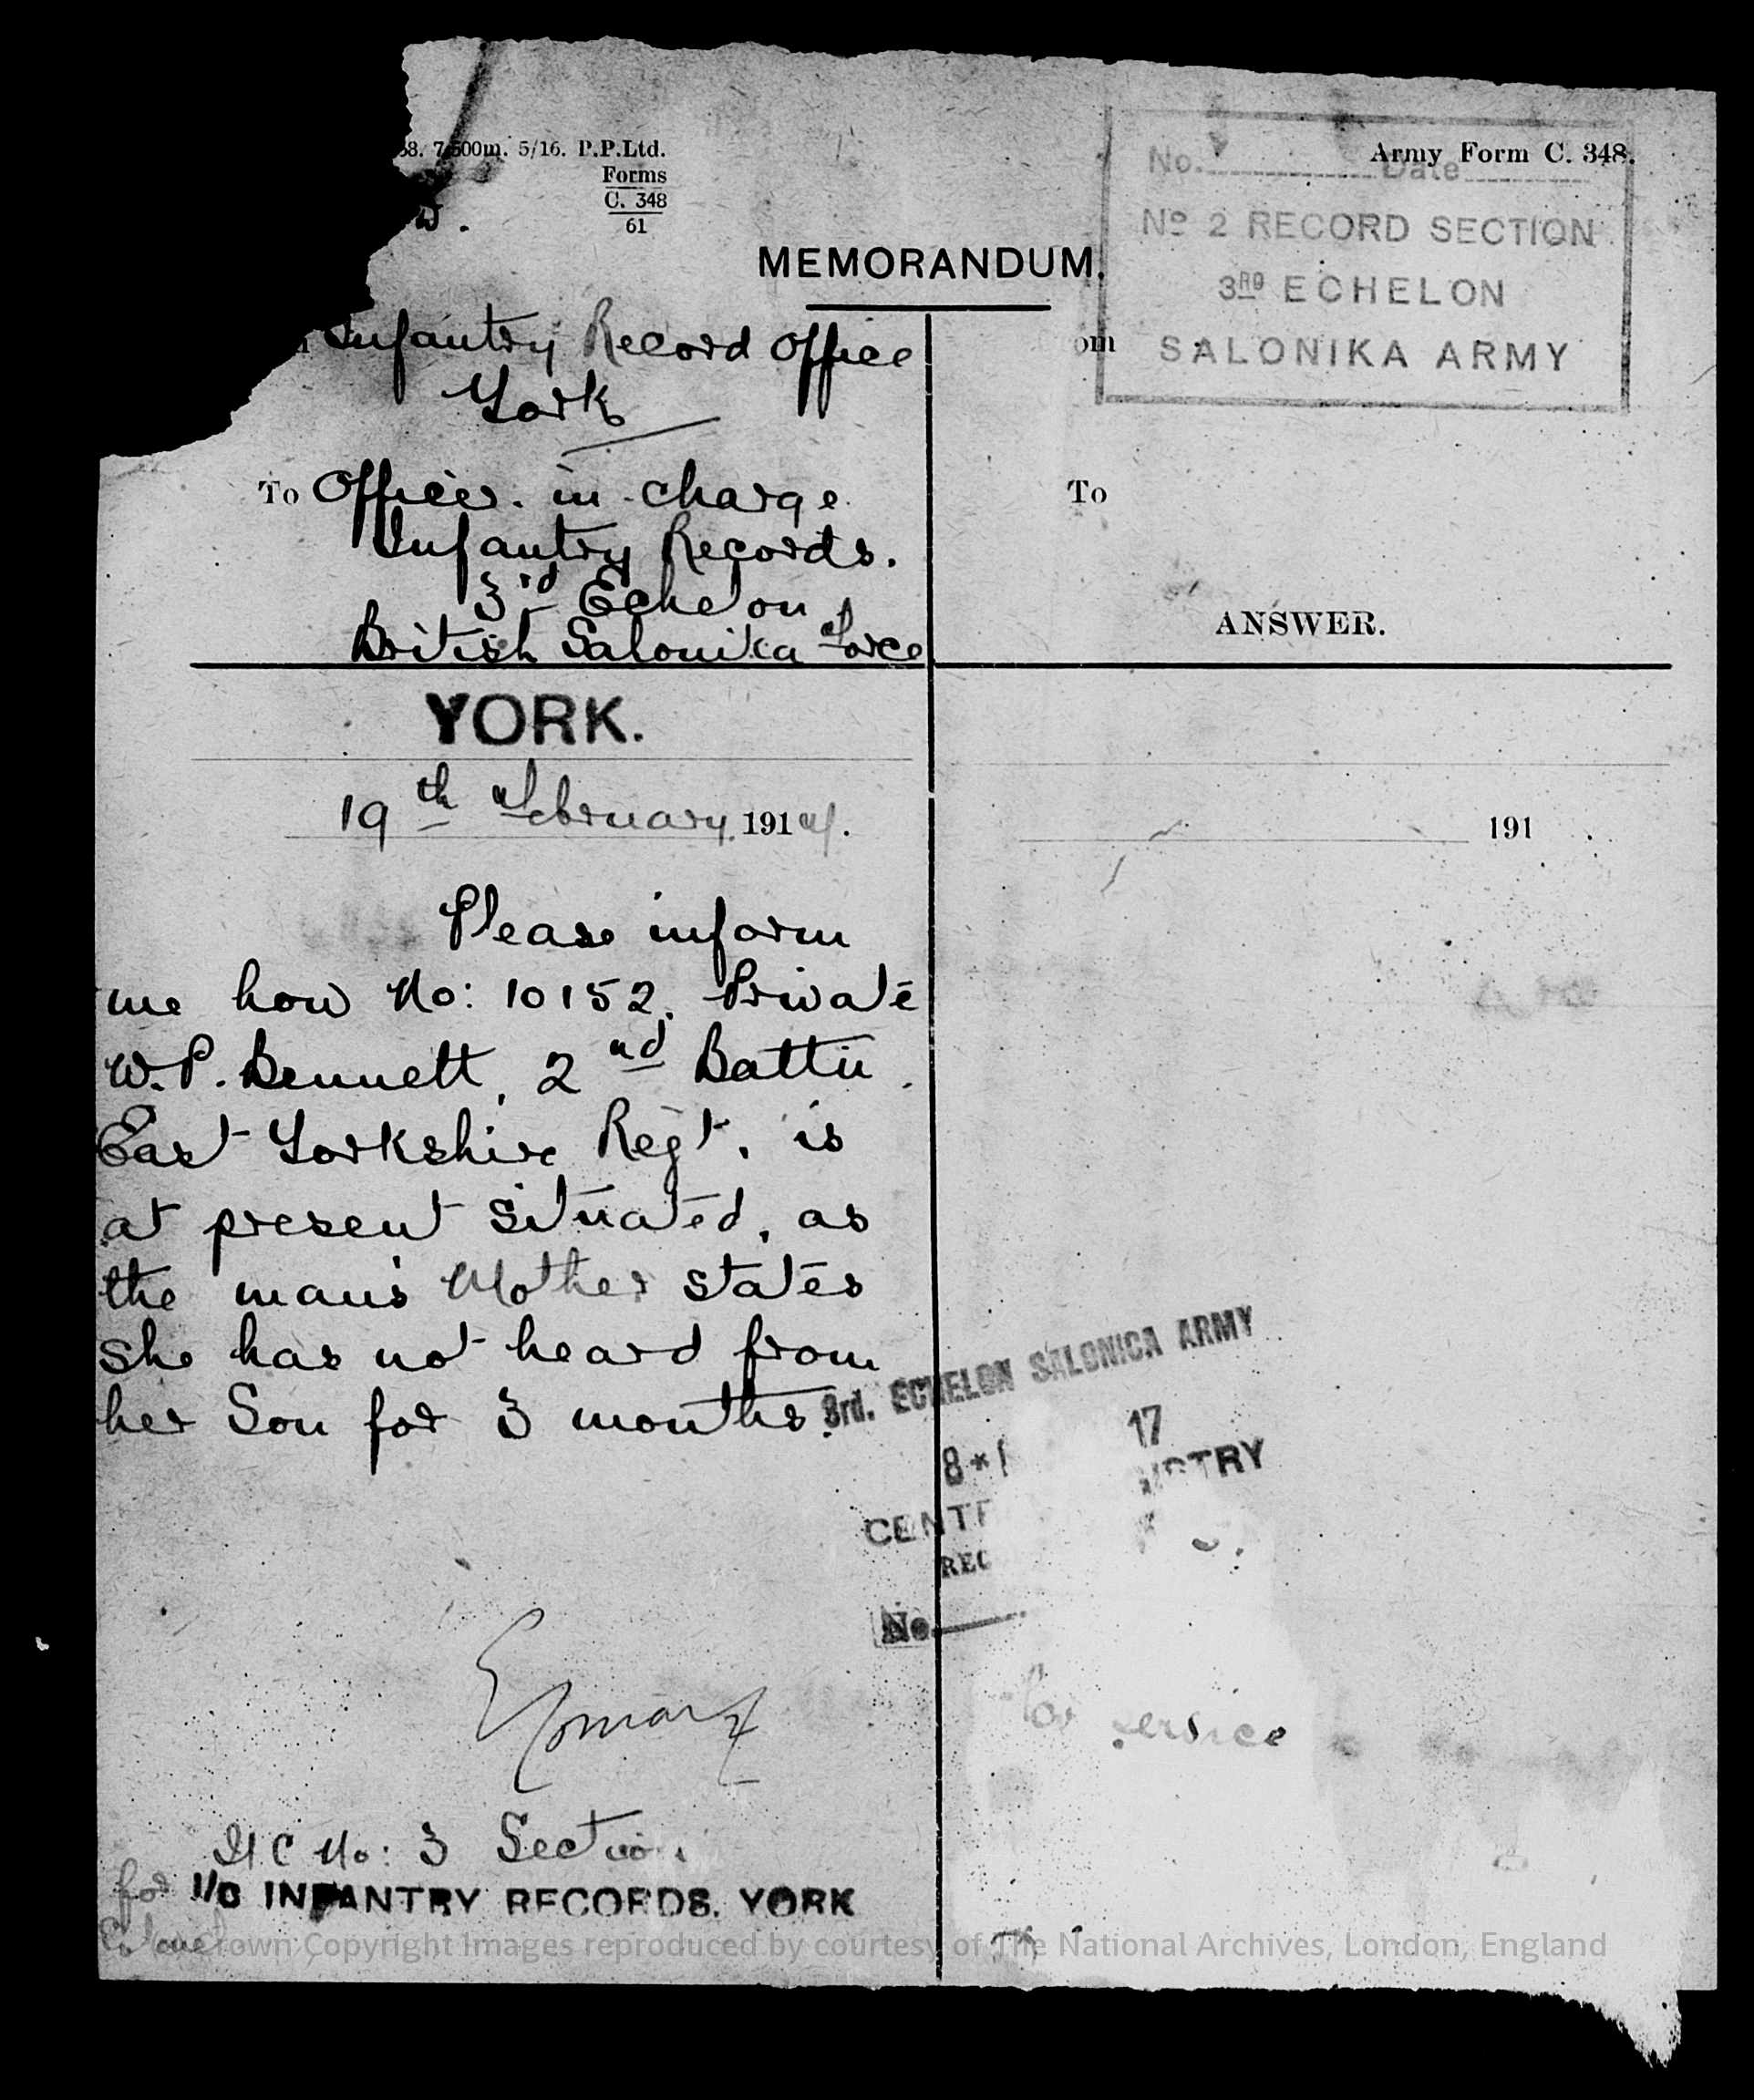 58. 7,500m. 5/16. P.P.Ltd.
Forms
C. 348
61
Army Form C. 348.
No. Date
Nº 2 RECORD SECTION
3RD ECHELON
SALONIKA ARMY
MEMORANDUM.
Infantry Record Office
York
To Officer. in charge
Infantry Records.
3rd Echelon
British Salonika Force
om
To
ANSWER.
YORK.
19th February 191
191
Please inform
me how No: 10152. Private
W.P. Bennett, 2nd Battn.
East Yorkshire Regt. is
at present situated, as
the man's Mother states
she has not heard from
her Son for 3 months.
3rd. ECHELON SALONICA ARMY
8 * 17
No.
service
No: 3 Section
for I/C INFANTRY RECORDS. YORK
Colonel
Crown Copyright Images reproduced by courtesy of The National Archives, London, England